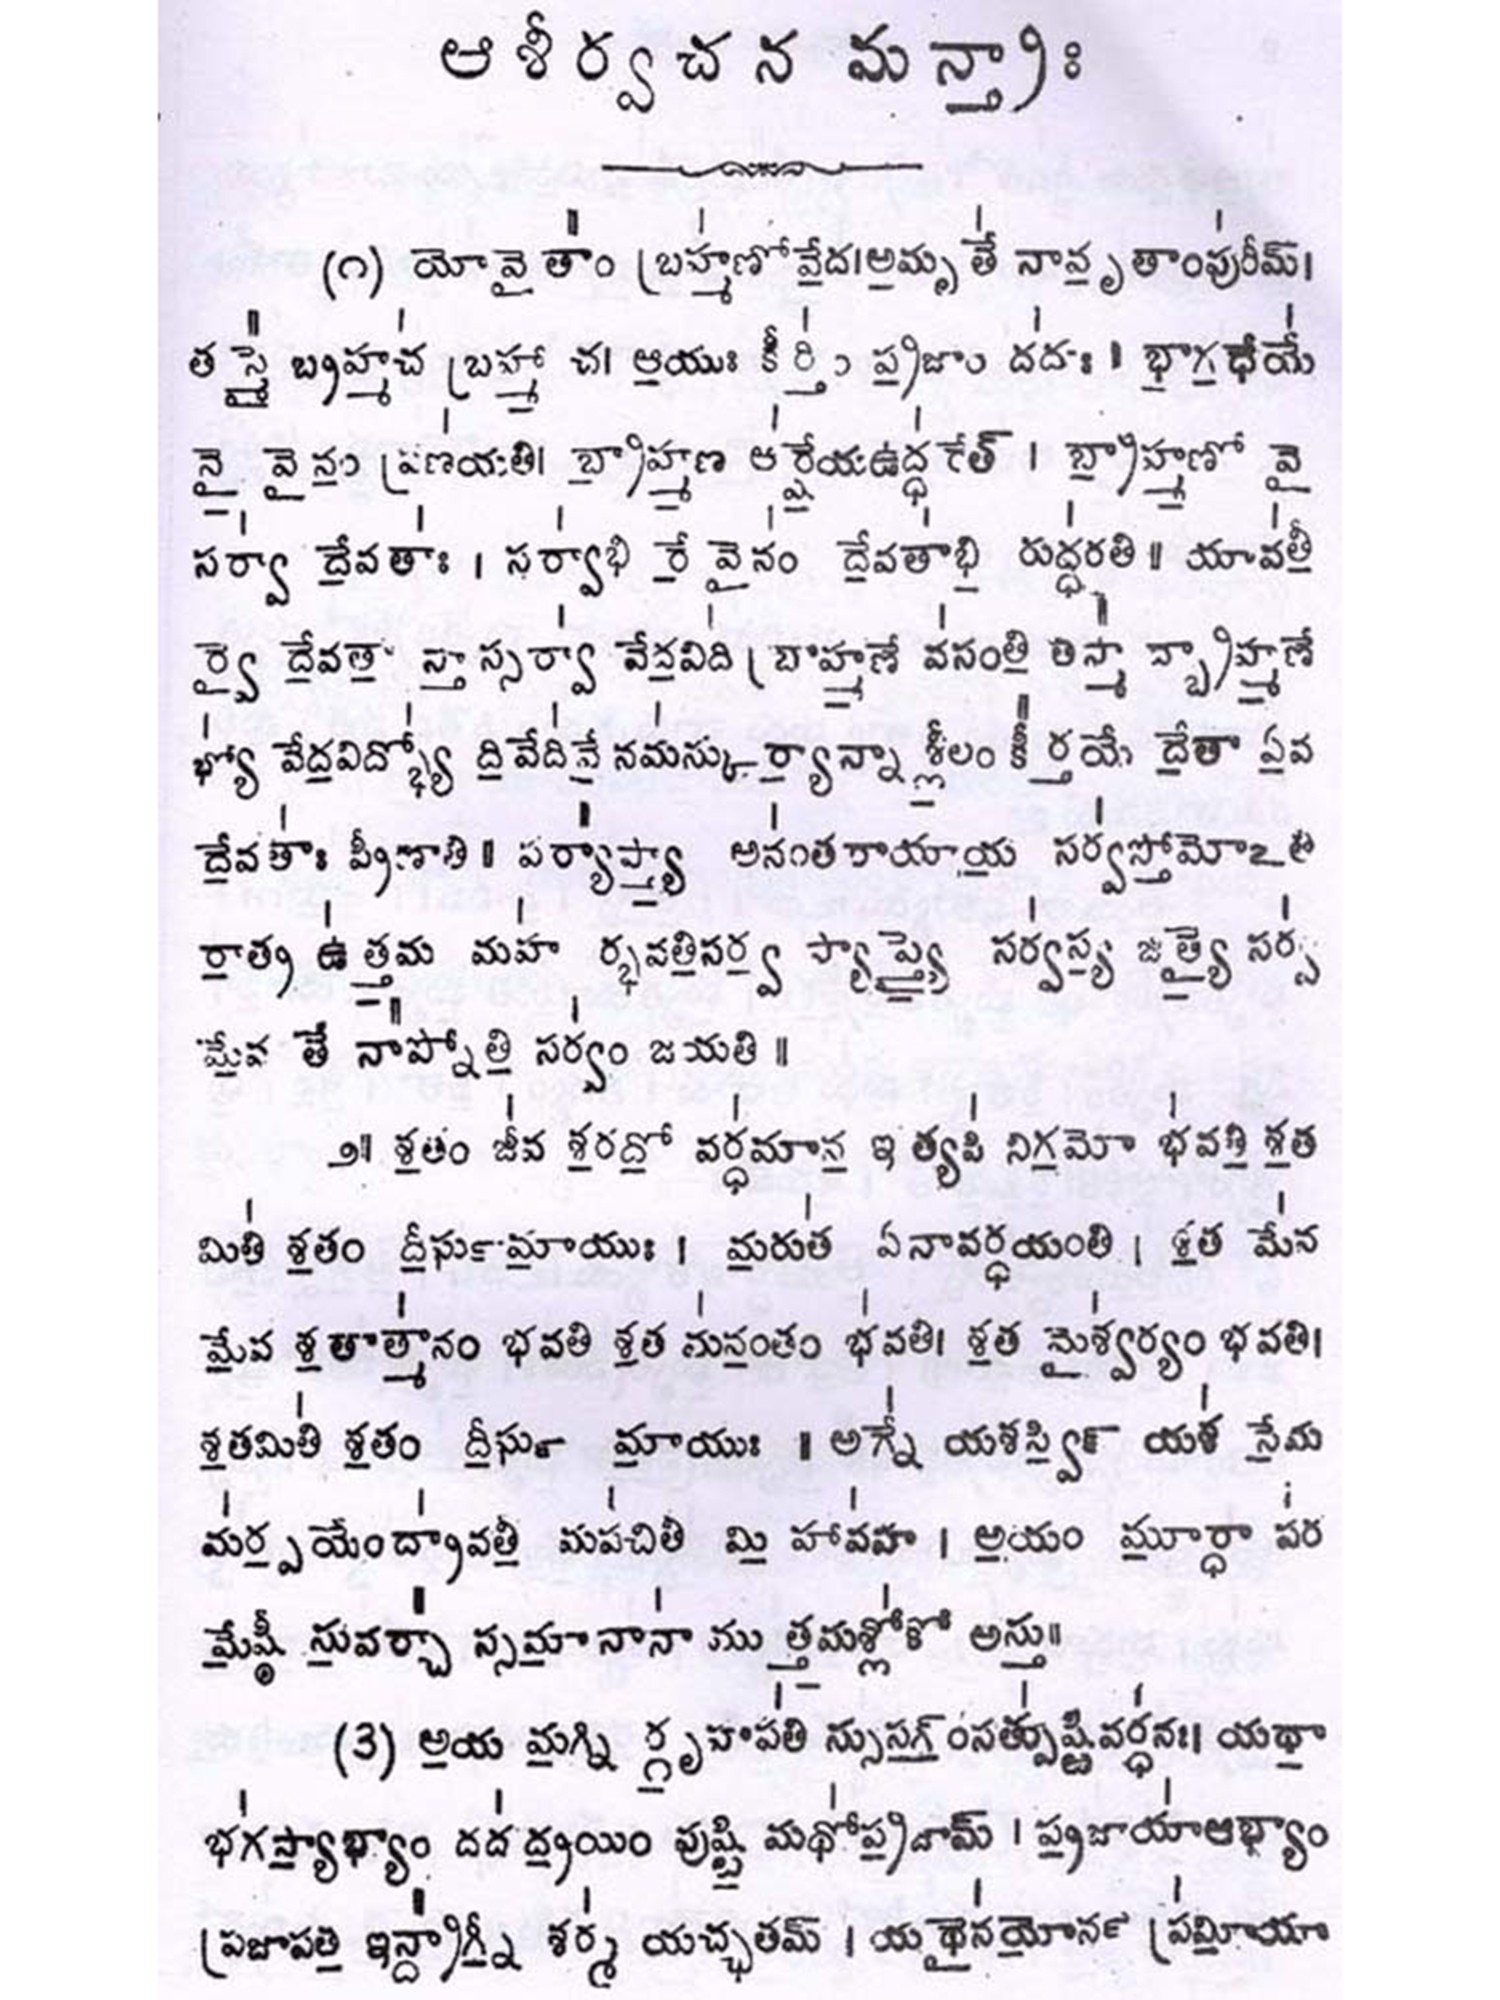 ఆశీర్వచన మన్త్రాః
(౧) యోవైతాం బ్రహ్మణోవేద।అమృతే నావృతాంపురీమ్।
తస్మై బ్రహ్మచ బ్రహ్మా చ। ఆయుః కీర్తిం ప్రజాం దదుః ॥ భాగధేయే
నై వైనం ప్రణయతి। బ్రాహ్మణ ఆర్షేయఉద్ధరేత్ । బ్రాహ్మణో వై
సర్వా దేవతాః । సర్వాభి రే వైనం దేవతాభి రుద్ధరతి॥ యావతీ
ర్వై దేవతా స్తా స్సర్వా వేదవిది బ్రాహ్మణే వసంతి తస్మా ద్బ్రాహ్మణే
భ్యో వేదవిద్భ్యో దివేదివే నమస్కుర్యాన్నా శ్లీలం కీర్తయే దేతా ఏవ
దేవతాః ప్రీణాతి॥ పర్యాప్త్యా అనంతరాయాయ సర్వస్తోమోఽతి
రాత్ర ఉత్తమ మహ ర్భవతిసర్వ స్యాప్త్యై సర్వస్య జిత్యై సర్వ
మేవ తే నాప్నోతి సర్వం జయతి॥
౨॥ శతం జీవ శరదో వర్ధమాన ఇత్యపి నిగమో భవతి శత
మితి శతం దీర్ఘమాయుః । మరుత ఏనావర్ధయంతి । శత మేన
మేవ శతాత్మానం భవతి శత మనంతం భవతి। శత మైశ్వర్యం భవతి।
శతమితి శతం దీర్ఘ మాయుః ॥ అగ్నే యశస్విన్ యశ సేమ
మర్పయేంద్రావతీ మపచితీ మి హావహ । అయం మూర్ధా పర
మేష్ఠీ సువర్చా స్సమానానా ముత్తమశ్లోకో అస్తు॥
(3) అయ మగ్ని ర్గృహపతి స్సుసగ్ంసత్పుష్టివర్ధనః। యథా
భగస్యాభ్యాం దదద్రయిం పుష్టి మథోప్రజామ్ । ప్రజాయాఆభ్యాం
ప్రజాపతి ఇన్ద్రాగ్నీ శర్మ యచ్ఛతమ్ । యథైనయోర్న ప్రమీయా